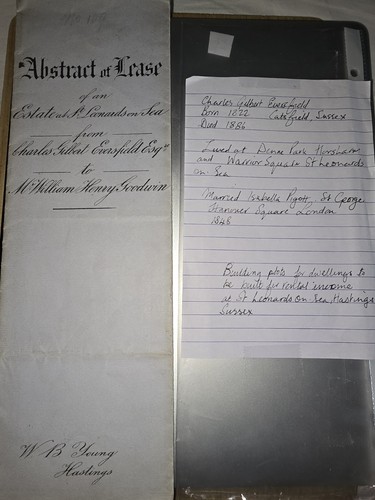 Abstract of Lease
of an
Estate at St. Leonards on Sea
from
Charles Gilbert Eversfield Esqre
to
Mr William Henry Goodwin
W B Young
Hastings
Charles Gilbert Eversfield
Born 1822 Catsfield, Sussex
Died 1886
Lived at Denne Park Horsham
and Warrior Square St Leonards
on Sea
Married Isabella Pigott, St George
Hanover Square London
1848
Building plots for dwellings to
be built for rental income
at St Leonards on Sea, Hastings
Sussex